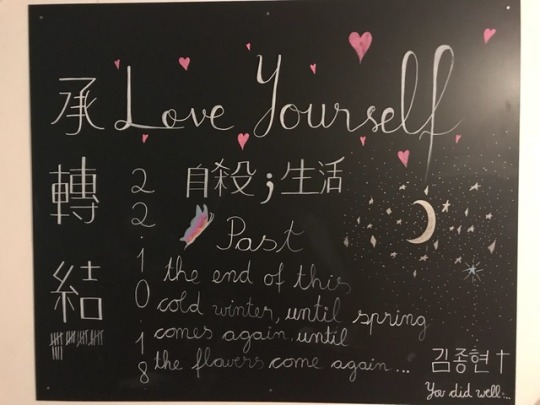 承 Love Yourself
轉
結
22.10.18
自殺;生活
Past
the end of this
cold winter, until spring
comes again, until
the flowers come again...
김종현†
You did well...